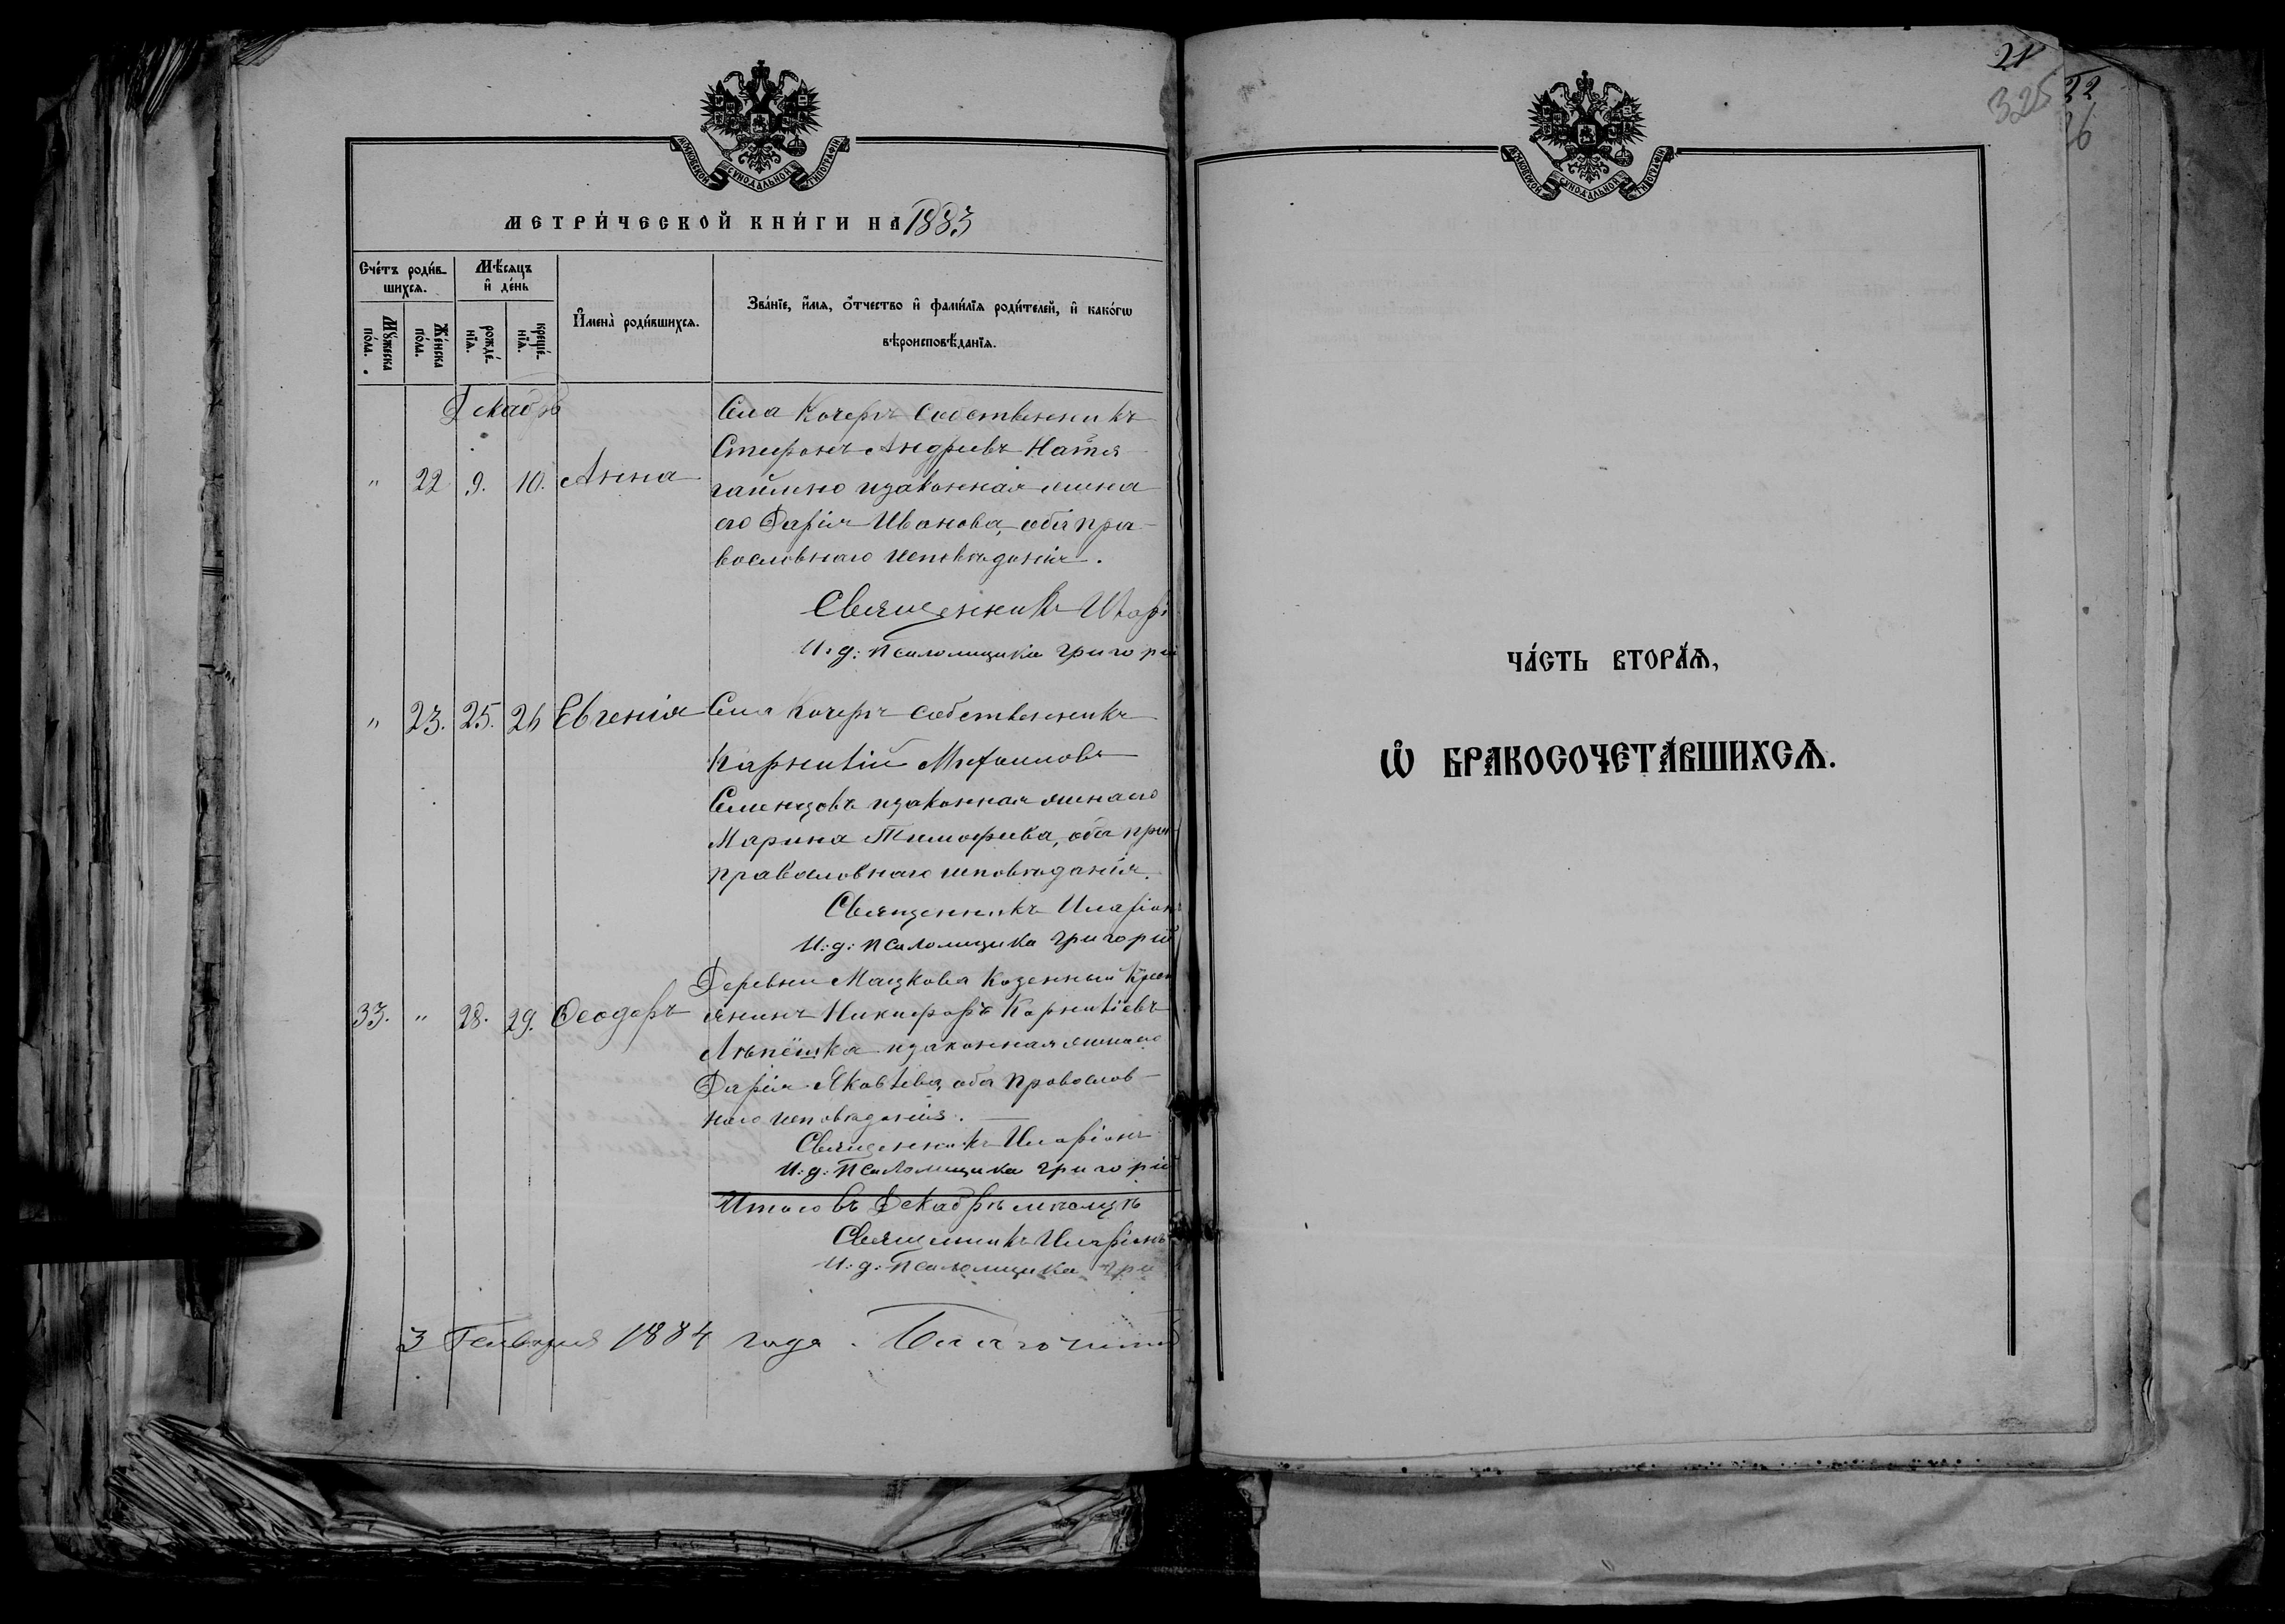 МОСКОВСКОЙ СѴНОДАЛЬНОЙ ТИПОГРАФІИ
МЕТРИ́ЧЕСКОЙ КНИ́ГИ НА 1883
Сче́тъ роди́в-
шихся.
Мѣ́сяцъ
и де́нь
Му́жеска
по́ла.
Же́нска
по́ла.
рожде́-
нїя.
креще́-
нїя.
Имена̀ роди́вшихся.
Зва́нїе, и́мя, о́тчество и фами́лїя роди́телей, и како́гѡ
вѣроисповѣ́данїя.
Декабрь
Села Кочеръ собственникъ
Стефонъ Андреевъ
" 22 9. 10. Анна
изаконная жена
его Дарія Иванова, оба пра-
вославнаго исповѣданія.
Священникъ Иларі
И: д: псаломщика Григорій
" 23. 25. 26 Евгенія Села Кочеръ собственникъ
Карнилій Михаиловъ
Семенцовъ изаконная жена его
Марина Тимофеева, оба пра-
православнаго исповѣданія.
Священникъ Иларіонъ
И: д: псаломщика Григорій
Деревни Мацкова Козенный Крест
33. " 28. 29. Ѳеодоръ янинъ Никифоръ Карниліевъ
Лѣпёшка изаконная жена его
Дарія Яковлева, оба православ-
наго исповѣданія.
Священникъ Иларіонъ
И: д: Псаломщика Григорій
Итого въ Декабрѣ мѣсяцѣ
Священникъ Иларіонъ
И: д: Псаломщика Гри
3 Генваря 1884 года. Благочинный
21
325 22
26
МОСКОВСКОЙ СѴНОДАЛЬНОЙ ТИПОГРАФІИ
ЧА́СТЬ ВТОРА́Я,
Ѡ БРАКОСОЧЕТА́ВШИХСЯ.